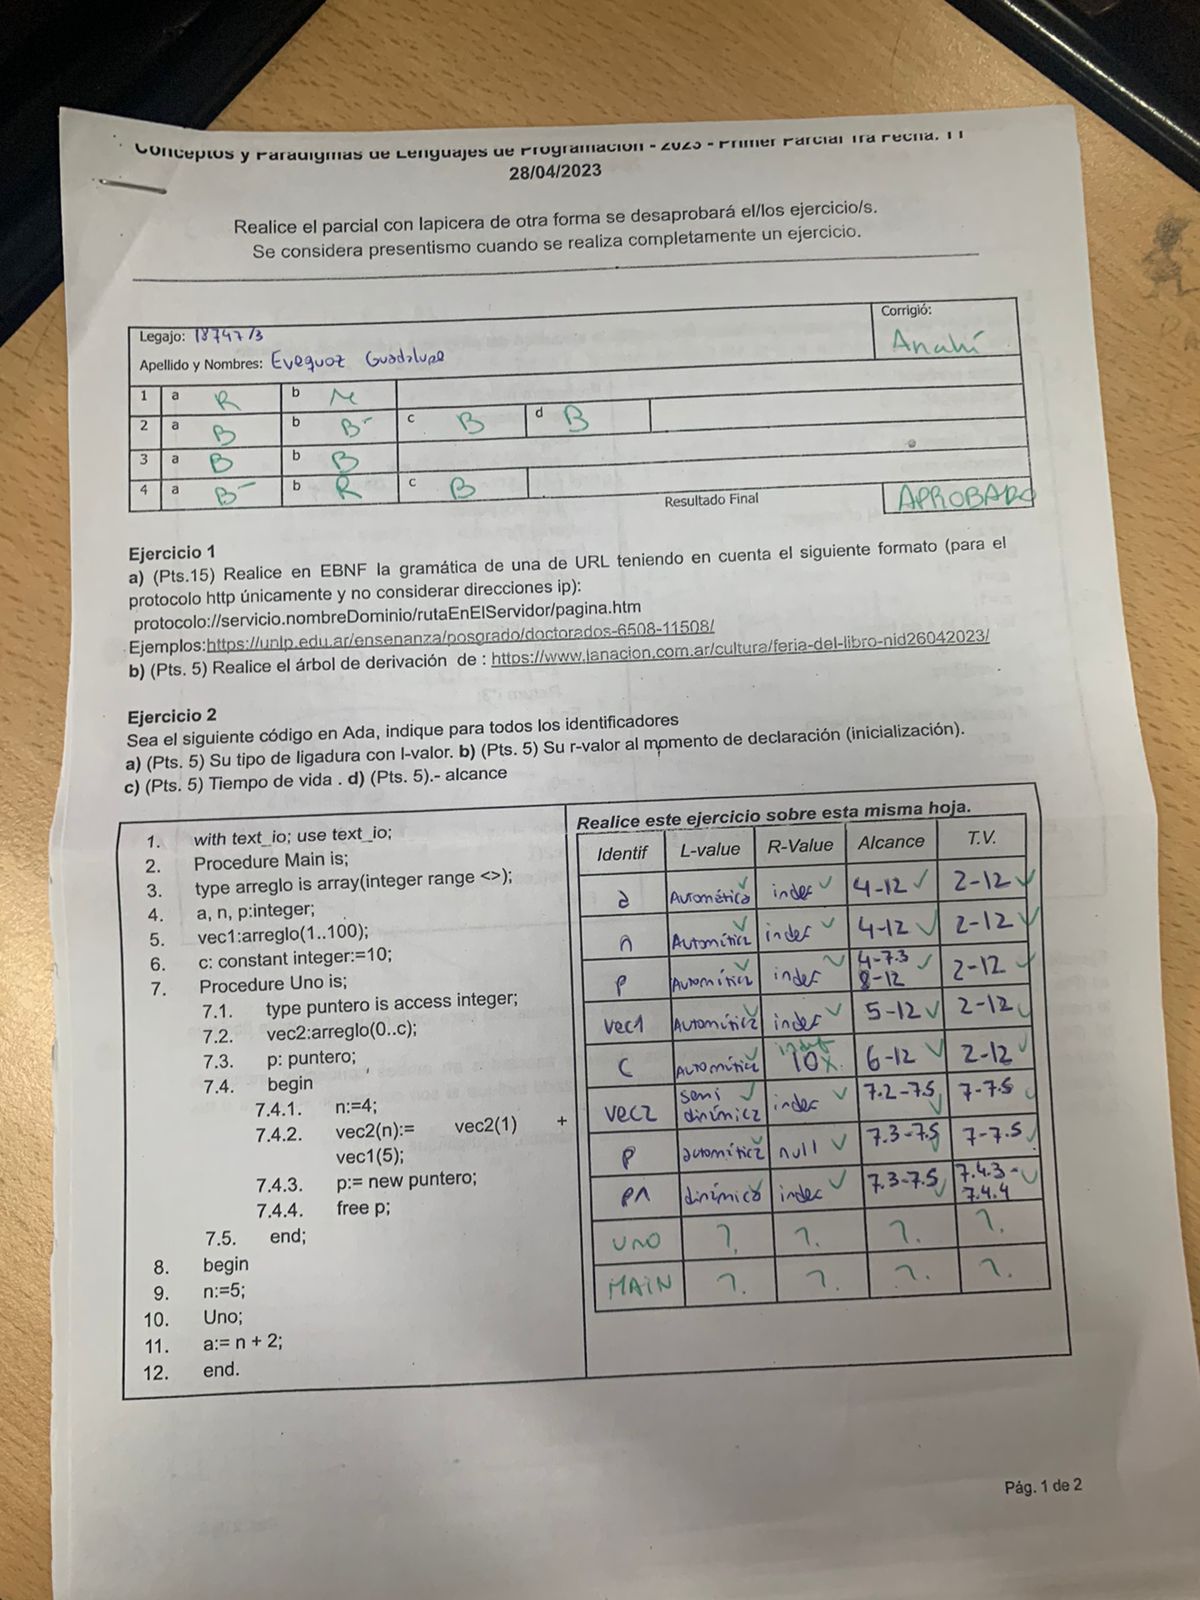 Conceptos y Paradigmas de Lenguajes de Programación - 2023 - Primer Parcial 1ra Fecha. T1
28/04/2023
Realice el parcial con lapicera de otra forma se desaprobará el/los ejercicio/s.
Se considera presentismo cuando se realiza completamente un ejercicio.
Legajo: 18747/3
Corrigió:
Anahí
Apellido y Nombres: Evequoz Guadalupe
1 a R b M
2 a B b B- c B d B
3 a B b B
4 a B- b R c B
Resultado Final APROBADO
Ejercicio 1
a) (Pts.15) Realice en EBNF la gramática de una de URL teniendo en cuenta el siguiente formato (para el
protocolo http únicamente y no considerar direcciones ip):
protocolo://servicio.nombreDominio/rutaEnElServidor/pagina.htm
Ejemplos:https://unlp.edu.ar/ensenanza/posgrado/doctorados-6508-11508/
b) (Pts. 5) Realice el árbol de derivación de : https://www.lanacion.com.ar/cultura/feria-del-libro-nid26042023/
Ejercicio 2
Sea el siguiente código en Ada, indique para todos los identificadores
a) (Pts. 5) Su tipo de ligadura con l-valor. b) (Pts. 5) Su r-valor al momento de declaración (inicialización).
c) (Pts. 5) Tiempo de vida . d) (Pts. 5).- alcance
1. with text_io; use text_io;
2. Procedure Main is;
3. type arreglo is array(integer range <>);
4. a, n, p:integer;
5. vec1:arreglo(1..100);
6. c: constant integer:=10;
7. Procedure Uno is;
7.1. type puntero is access integer;
7.2. vec2:arreglo(0..c);
7.3. p: puntero;
7.4. begin
7.4.1. n:=4;
7.4.2. vec2(n):= vec2(1) +
vec1(5);
7.4.3. p:= new puntero;
7.4.4. free p;
7.5. end;
8. begin
9. n:=5;
10. Uno;
11. a:= n + 2;
12. end.
Realice este ejercicio sobre esta misma hoja.
Identif L-value R-Value Alcance T.V.
a Automática indef 4-12 2-12
n Automática indef 4-12 2-12
p Automática indef 4-7.3 2-12
8-12
vec1 Automática indef 5-12 2-12
indef
c Automática 10 x. 6-12 2-12
vec2 semi dinámica indef 7.2-7.5 7-7.5
p automática null 7.3-7.5 7-7.5
p^ dinámica indef 7.3-7.5 7.4.3-
7.4.4
UNO ?. ?. ?. ?.
MAIN ?. ?. ?. ?.
Pág. 1 de 2